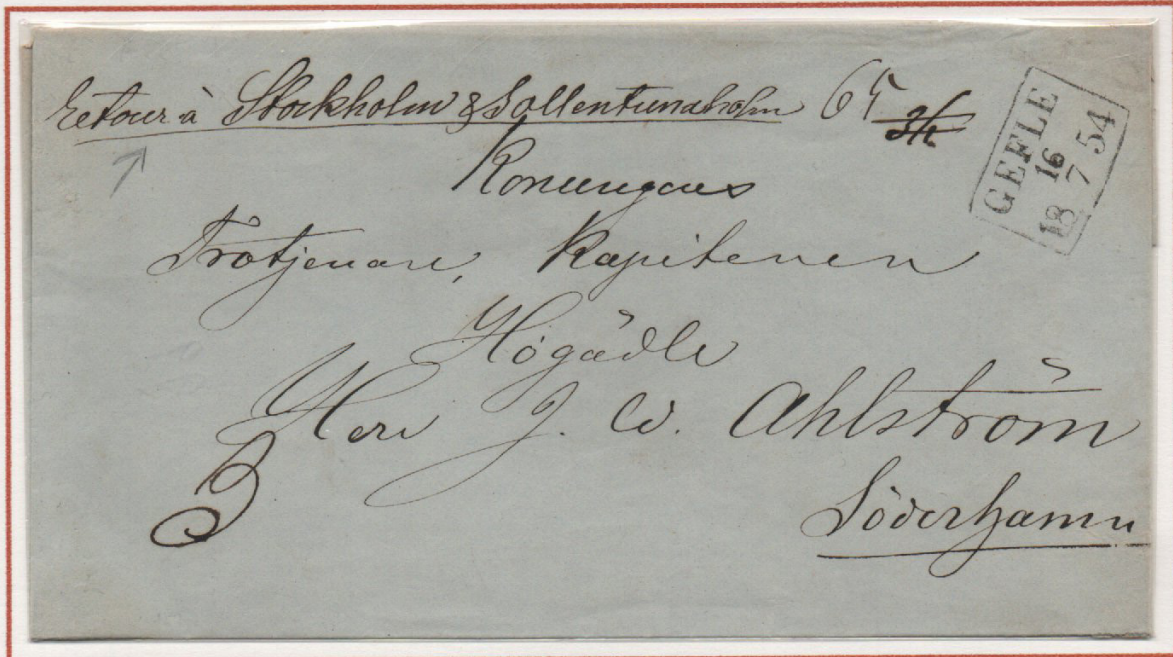 Retour à Stockholm & Sollentunaholm 65
GEFLE
16
18 7 54
Konungens
Trotjenare, Kapitenen
Högädle
Herr J. W. Ahlström
3
Söderhamn